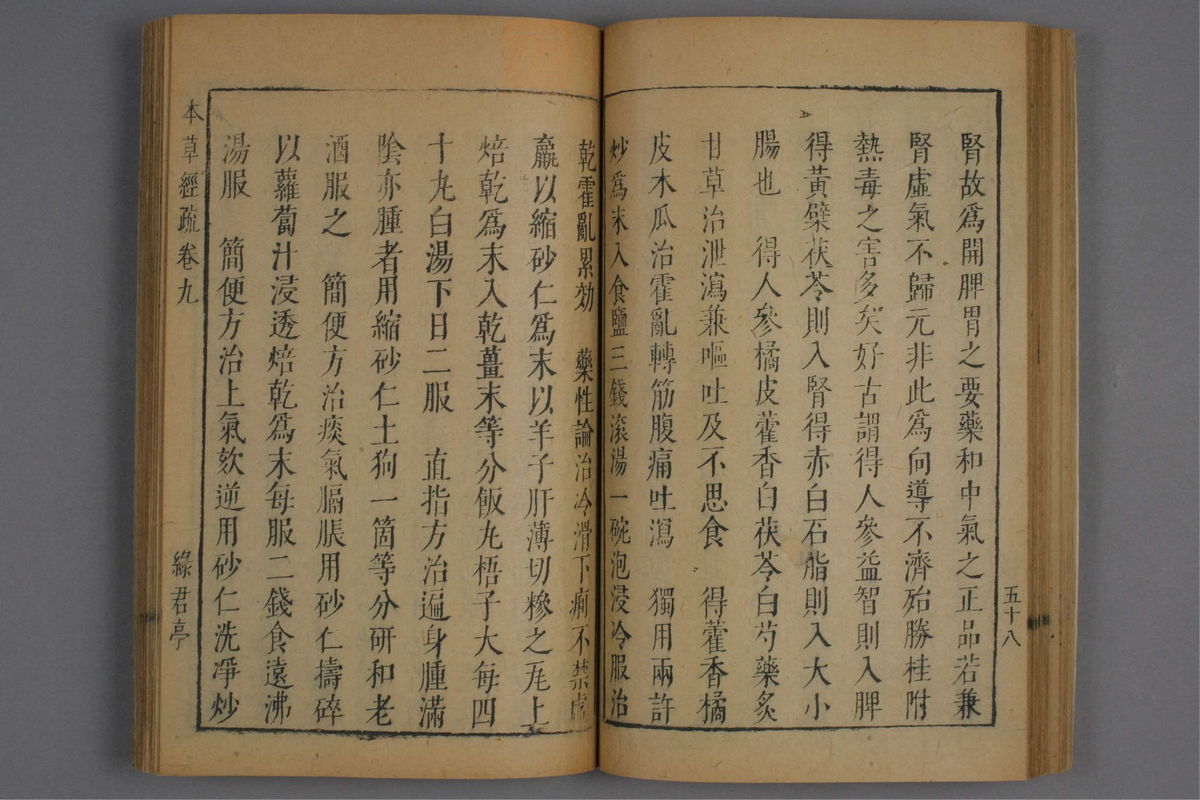 腎故爲開脾胃之要藥和中氣之正品若兼
腎虛氣不歸元非此爲向導不濟殆勝桂附
熱毒之害多矣好古謂得人參益智則入脾
得黃檗茯苓則入腎得赤白石脂則入大小
腸也　得人參橘皮藿香白茯苓白芍藥炙
甘草治泄瀉兼嘔吐及不思食　得藿香橘
皮木瓜治霍亂轉筋腹痛吐瀉　獨用兩許
炒爲末入食鹽三錢滾湯一碗泡浸冷服治
五十八
乾霍亂累効　藥性論治冷滑下痢不禁虛
羸以縮砂仁爲末以羊子肝薄切糝之瓦上
焙乾爲末入乾薑末等分飯丸梧子大每四
十丸白湯下日二服　直指方治遍身腫滿
陰亦腫者用縮砂仁土狗一箇等分研和老
酒服之　簡便方治痰氣膈脹用砂仁擣碎
以蘿蔔汁浸透焙乾爲末每服二錢食遠沸
湯服　簡便方治上氣欬逆用砂仁洗凈炒
本草經疏卷九
綠君亭